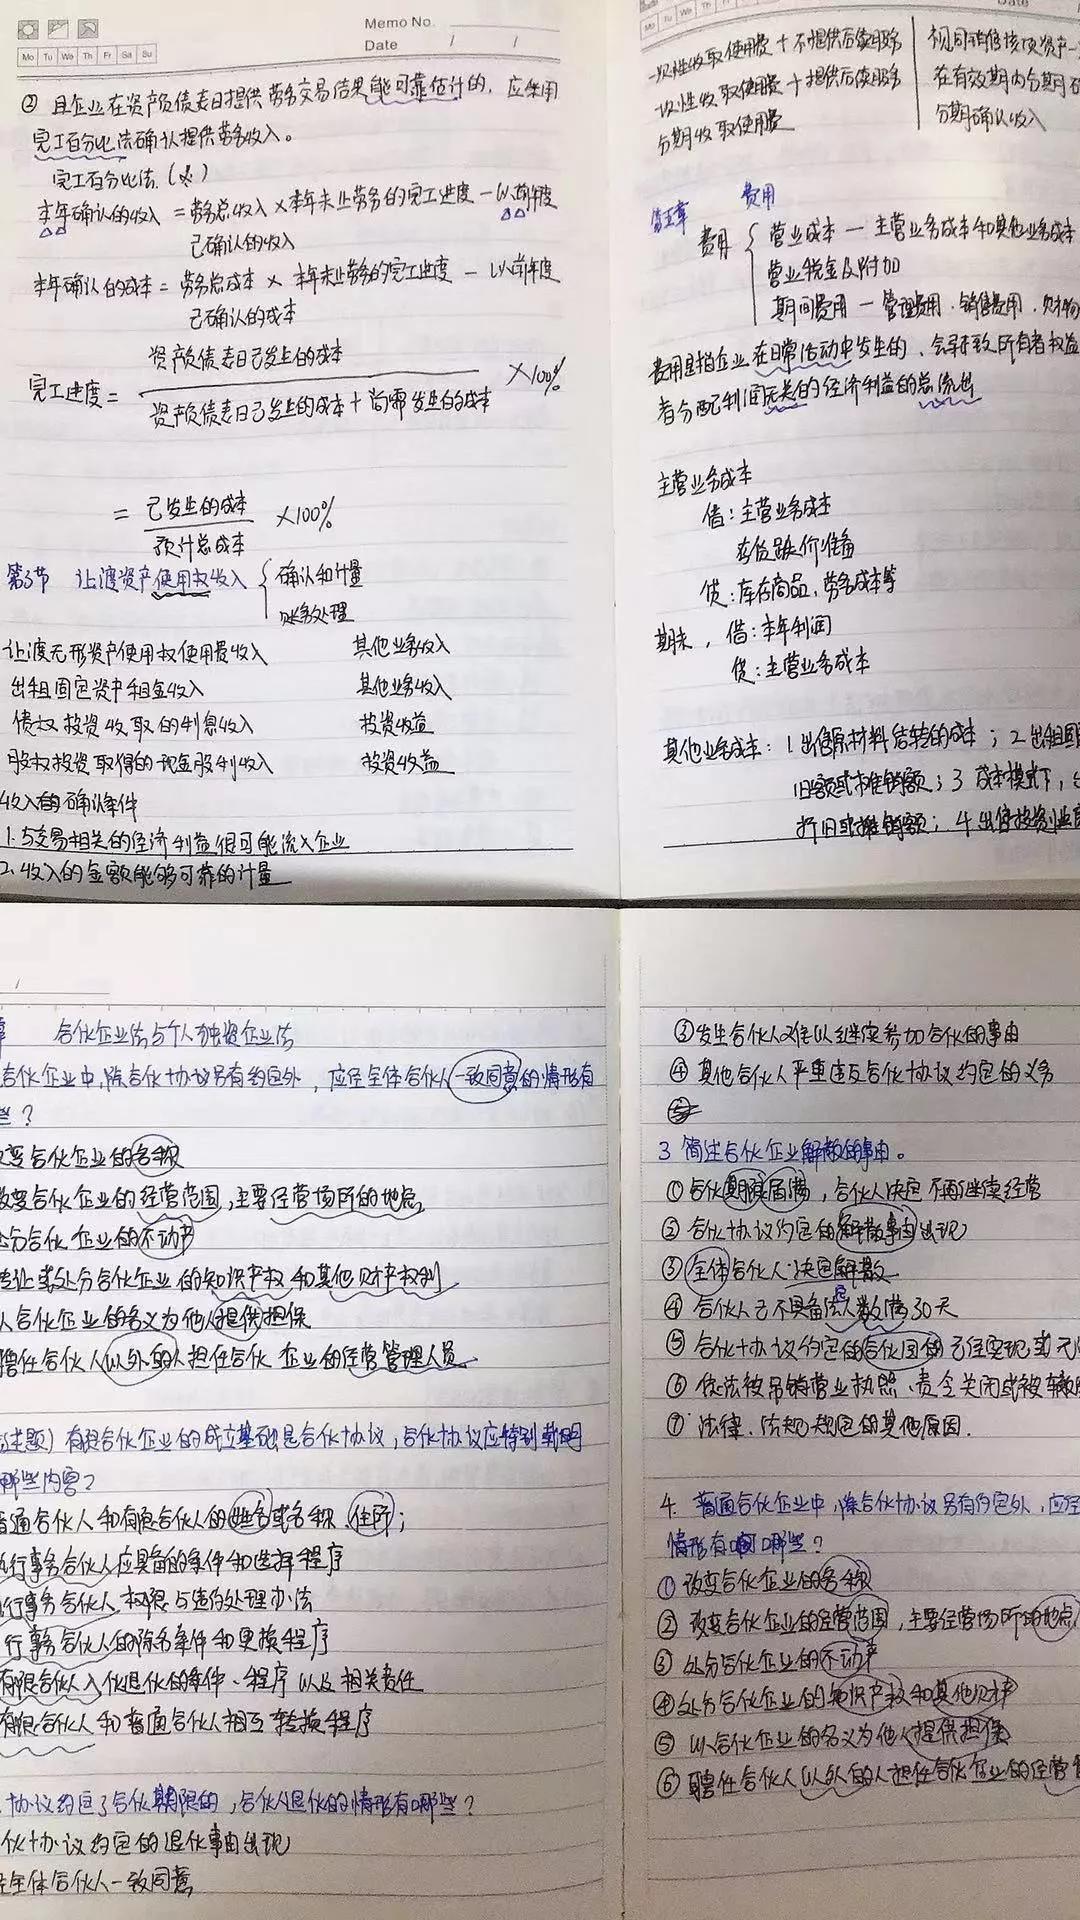 Memo No.
Date / /
Mo Tu We Th Fr Sa Su
② 且企业在资产负债表日提供劳务交易结果能可靠估计的，应采用
完工百分比法确认提供劳务收入。
完工百分比法.(义)
本年确认的收入 = 劳务总收入 × 本年末止劳务的完工进度 - 以前年度
已确认的收入
本年确认的成本 = 劳务总成本 × 本年末止劳务的完工进度 - 以前年度
已确认的成本
资产负债表日已发生的成本
完工进度 = ×100%
资产负债表日已发生的成本 + 尚需发生的成本
= 已发生的成本 ×100%
预计总成本
第3节 让渡资产使用权收入 { 确认和计量
账务处理
让渡无形资产使用权使用费收入 其他业务收入
出租固定资产租金收入 其他业务收入
债权投资收取的利息收入 投资收益
股权投资取得的现金股利收入 投资收益
收入的确认条件
1.与交易相关的经济利益很可能流入企业
2.收入的金额能够可靠的计量
Date
Mo Tu We Th Fr
一次性收取使用费 + 不提供后续服务 视同销售该项资产一
一次性收取使用费 + 提供后续服务 在有效期内分期确
分期收取使用费 分期确认收入
第五章 费用
费用 { 营业成本 — 主营业务成本和其他业务成本
营业税金及附加
期间费用 — 管理费用、销售费用、财务
费用是指企业在日常活动中发生的、会导致所有者权益
者分配利润无关的经济利益的总流出
主营业务成本
借：主营业务成本
存货跌价准备
贷：库存商品、劳务成本等
期末，借：本年利润
贷：主营业务成本
其他业务成本：1 出售原材料结转的成本；2 出租固
旧额或摊销额；3 成本模式下，
折旧或摊销额；4 出售投资
章 合伙企业法与个人独资企业法
合伙企业中，除合伙协议另有约定外，应经全体合伙人一致同意的情形有
些？
改变合伙企业的名称
改变合伙企业的经营范围，主要经营场所的地点
处分合伙企业的不动产
转让或处分合伙企业的知识产权和其他财产权利
以合伙企业的名义为他人提供担保
聘任合伙人以外的人担任合伙企业的经营管理人员
主题) 有限合伙企业的成立基础是合伙协议，合伙协议应特别载明
哪些内容？
普通合伙人和有限合伙人的姓名或名称、住所；
执行事务合伙人应具备的条件和选择程序
执行事务合伙人权限与违约处理办法
行事务合伙人的除名条件和更换程序
有限合伙人入伙退伙的条件、程序以及相关责任
有限合伙人和普通合伙人相互转换程序
协议约定了合伙期限的，合伙人退伙的情形有哪些？
伙协议约定的退伙事由出现
经全体合伙人一致同意
③ 发生合伙人难以继续参加合伙的事由
④ 其他合伙人严重违反合伙协议约定的义务
3 简述合伙企业解散的事由。
① 合伙期限届满，合伙人决定不再继续经营
② 合伙协议约定的解散事由出现
③ 全体合伙人决定解散
④ 合伙人已不具备法定人数满30天
⑤ 合伙协议约定的合伙目的已经实现或无
⑥ 依法被吊销营业执照、责令关闭或被撤
⑦ 法律、法规规定的其他原因.
4. 普通合伙企业中，除合伙协议另有约定外，应经
情形有哪些？
① 改变合伙企业的名称
② 改变合伙企业的经营范围，主要经营场所的地点
③ 处分合伙企业的不动产
④ 处分合伙企业的知识产权和其他财产
⑤ 以合伙企业的名义为他人提供担保
⑥ 聘任合伙人以外的人担任合伙企业的经营管